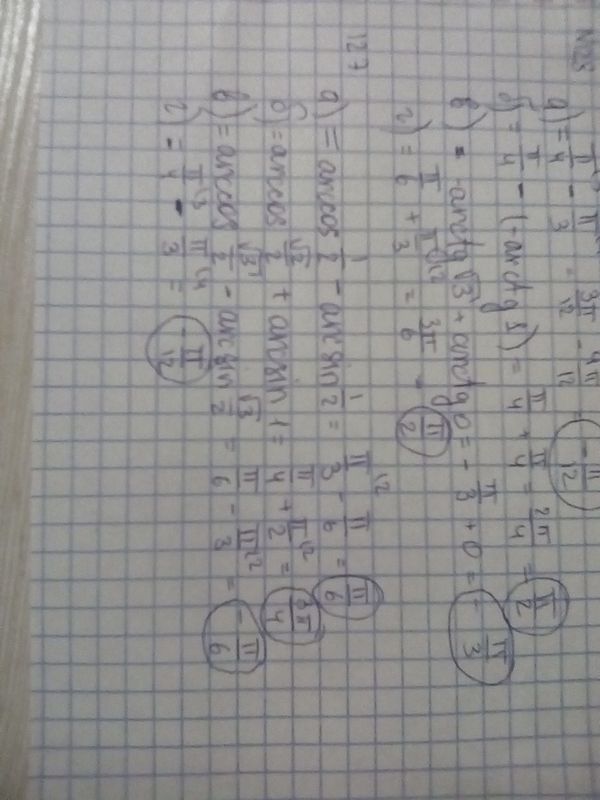 а) = π/4 - π/3 = 3π/12 - 4π/12 = -π/12
б) = π/4 - (-arctg 1) = π/4 + π/4 = 2π/4 = π/2
в) = -arctg √3 + arctg 0 = -π/3 + 0 = -π/3
г) = π/6 + π/3 \2 = 3π/6 = π/2
127
а) = arccos 1/2 - arcsin 1/2 = π/3 \2 - π/6 = π/6
б) = arccos √2/2 + arcsin 1 = π/4 + π/2 \2 = 3π/4
в) = arccos √3/2 - arcsin √3/2 = π/6 - π/3 \2 = -π/6
г) = π/4 \3 - π/3 \4 = -π/12